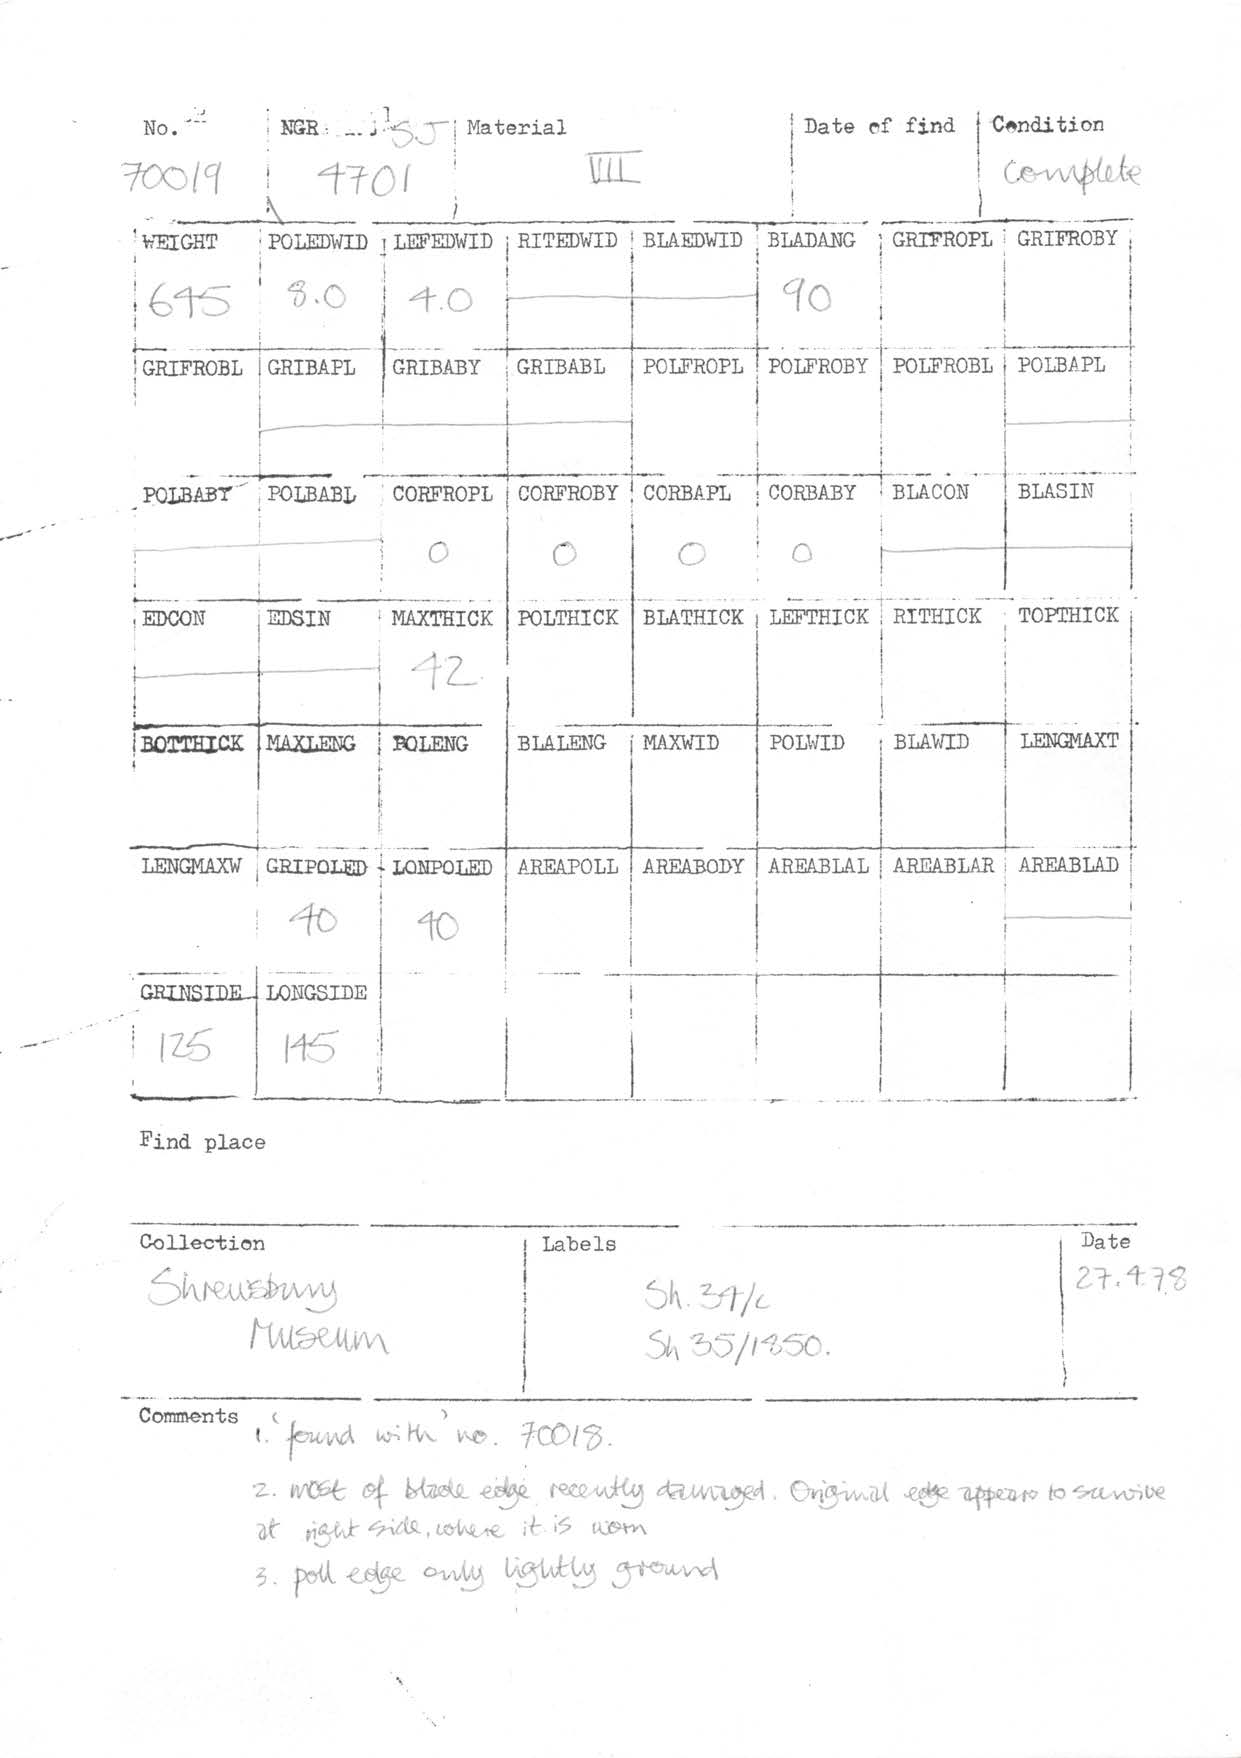 No. NGR SJ Material Date of find Condition
70019 4701 VIII complete
WEIGHT POLEDWID LEFEDWID RITEDWID BLAEDWID BLADANG GRIFROPL GRIFROBY
645 8.0 4.0 90
GRIFROBL GRIBAPL GRIBABY GRIBABL POLFROPL POLFROBY POLFROBL POLBAPL
POLBABY POLBABL CORFROPL CORFROBY CORBAPL CORBABY BLACON BLASIN
0 0 0 0
EDCON EDSIN MAXTHICK POLTHICK BLATHICK LEFTHICK RITHICK TOPTHICK
42
BOTTHICK MAXLENG POLENG BLALENG MAXWID POLWID BLAWID LENGMAXT
LENGMAXW GRIPOLED LONPOLED AREAPOLL AREABODY AREABLAL AREABLAR AREABLAD
40 40
GRINSIDE LONGSIDE
125 145
Find place
Collection Labels Date
Shrewsbury Sh. 34/c 27.4.78
Museum Sh 35/1850.
Comments 1. 'found with' no. 70018.
2. most of blade edge recently damaged. Original edge appears to survive
at right side, where it is worn
3. poll edge only lightly ground